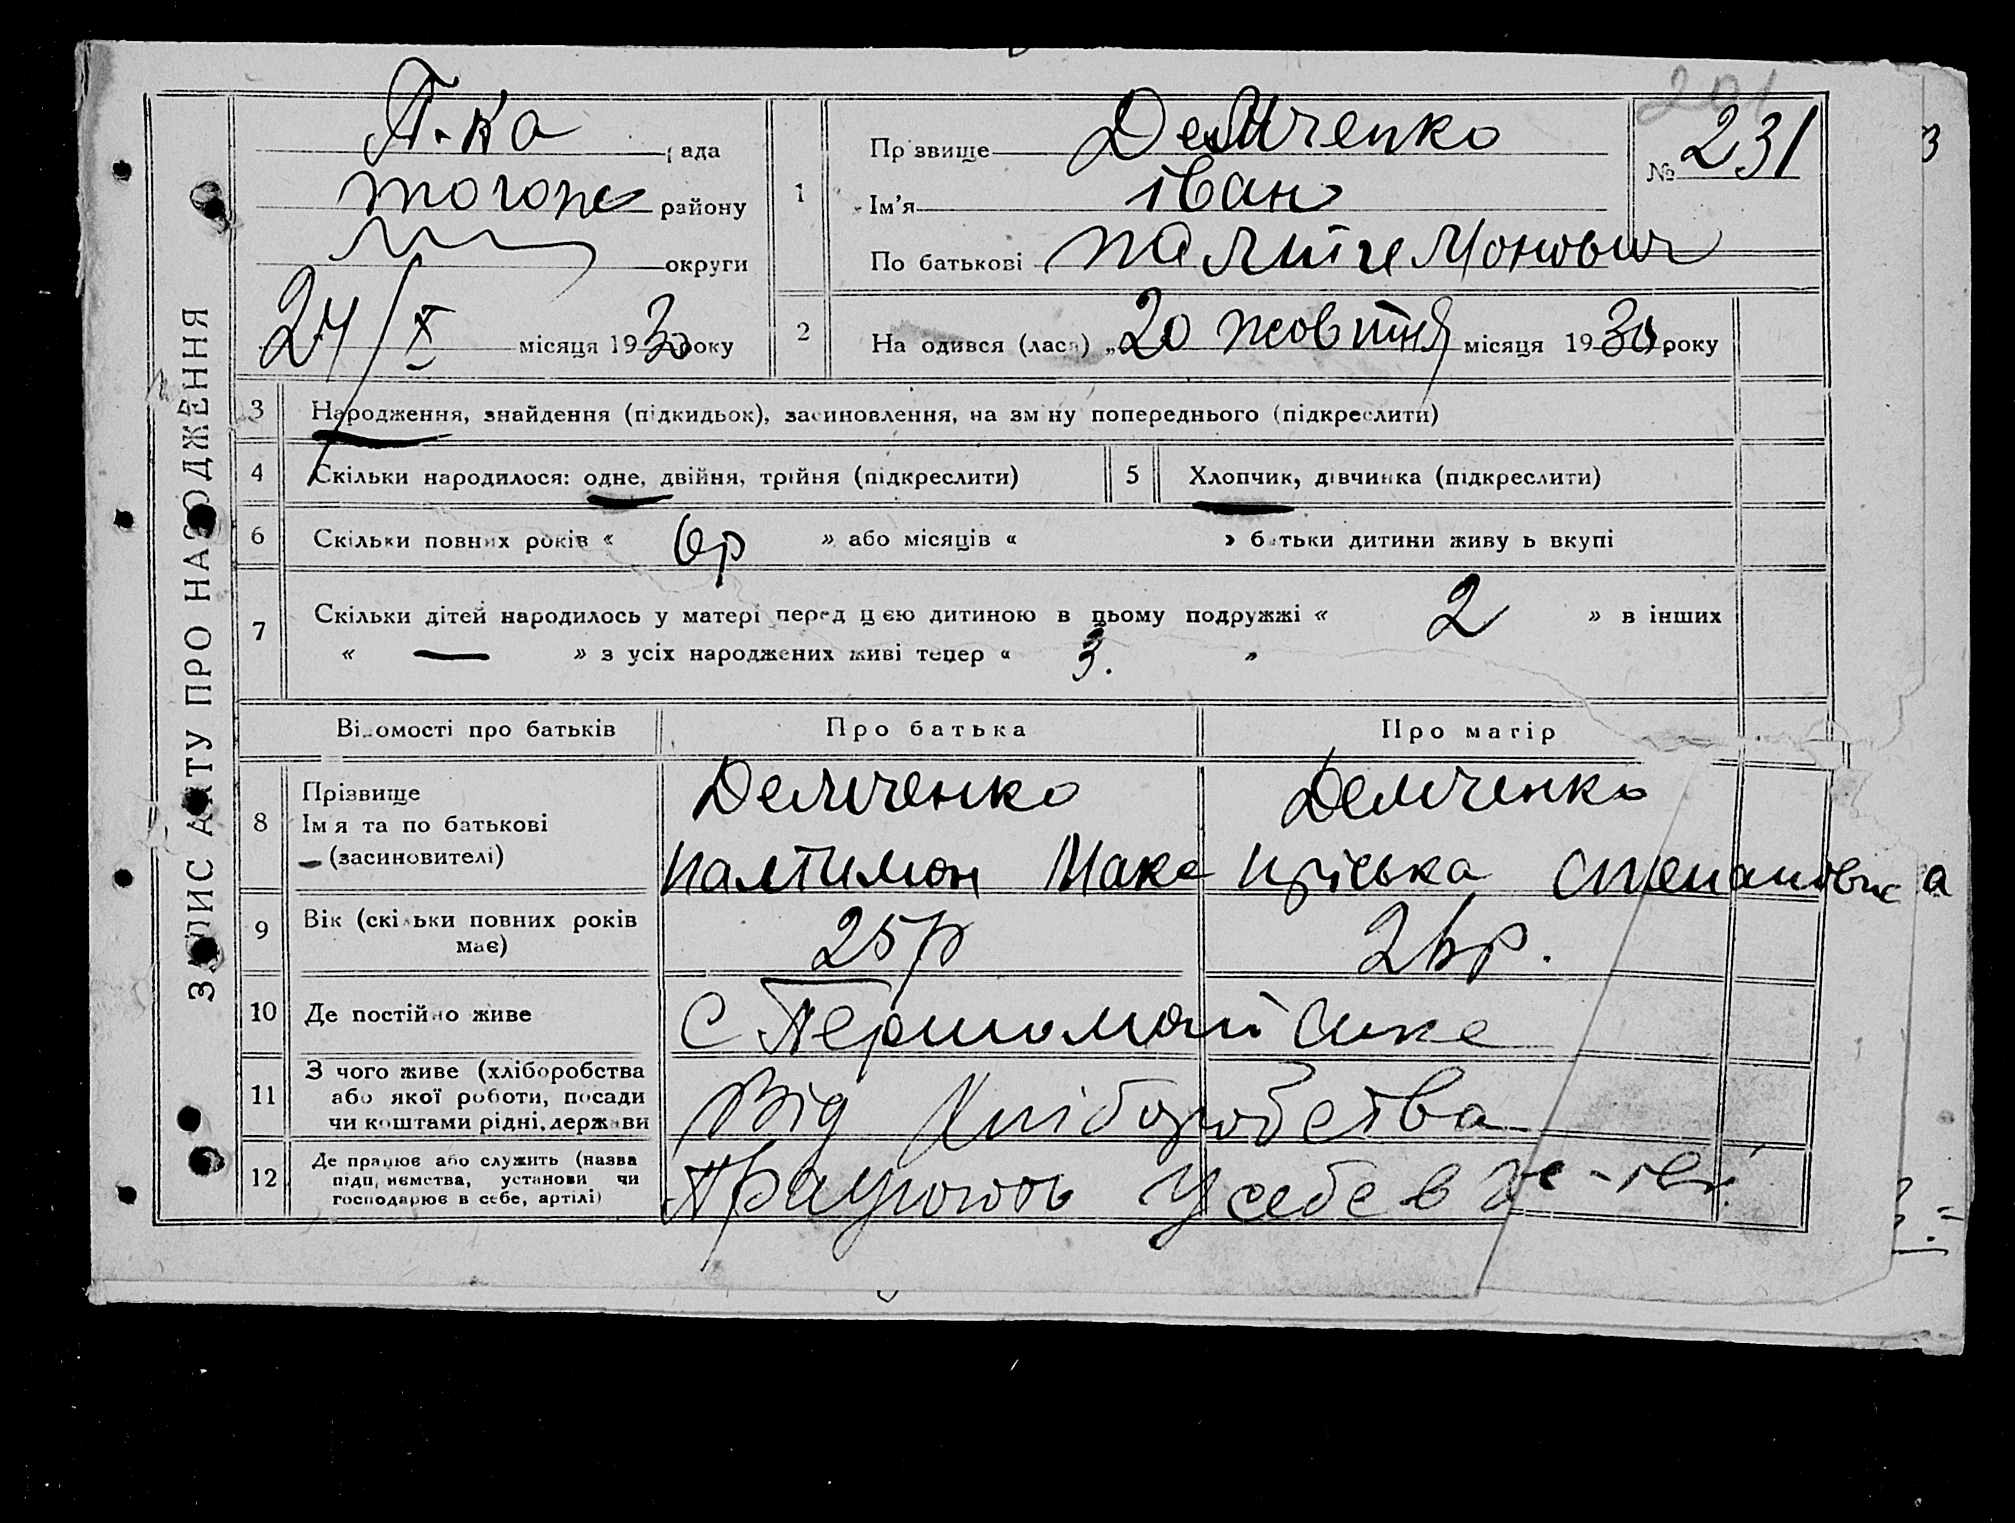 ЗАПИС АКТУ ПРО НАРОДЖЕННЯ
П-ка рада
тогоже району
округи
24/X місяця 1930 року
201
№ 231
1 Прізвище Демченко
Ім'я іван
По батькові палтиемонович
2 Народився (лась) „20 жовтня місяця 1930 року
3 Народження, знайдення (підкидьок), засиновлення, на зміну попереднього (підкреслити)
4 Скільки народилося: одне, двійня, трійня (підкреслити)
5 Хлопчик, дівчинка (підкреслити)
6 Скільки повних років « 6р » або місяців « » батьки дитини живуть вкупі
7 Скільки дітей народилось у матері перед цією дитиною в цьому подружжі « 2 » в інших
« — » з усіх народжених живі тепер « 3. »
Відомості про батьків Про батька Про матір
8 Прізвище
Ім я та по батькові
(засиновителі)
Демченко Демченко
палтимон Мака пріська степановна
9 Вік (скільки повних років має) 25р 26р.
10 Де постійно живе с Першомайське
11 З чого живе (хліборобства
або якої роботи, посади
чи коштами рідні, держави
Від Хліборобства
12 Де працює або служить (назва
підприємства, установи чи
господарює в себе, артілі)
Працюють у себе в